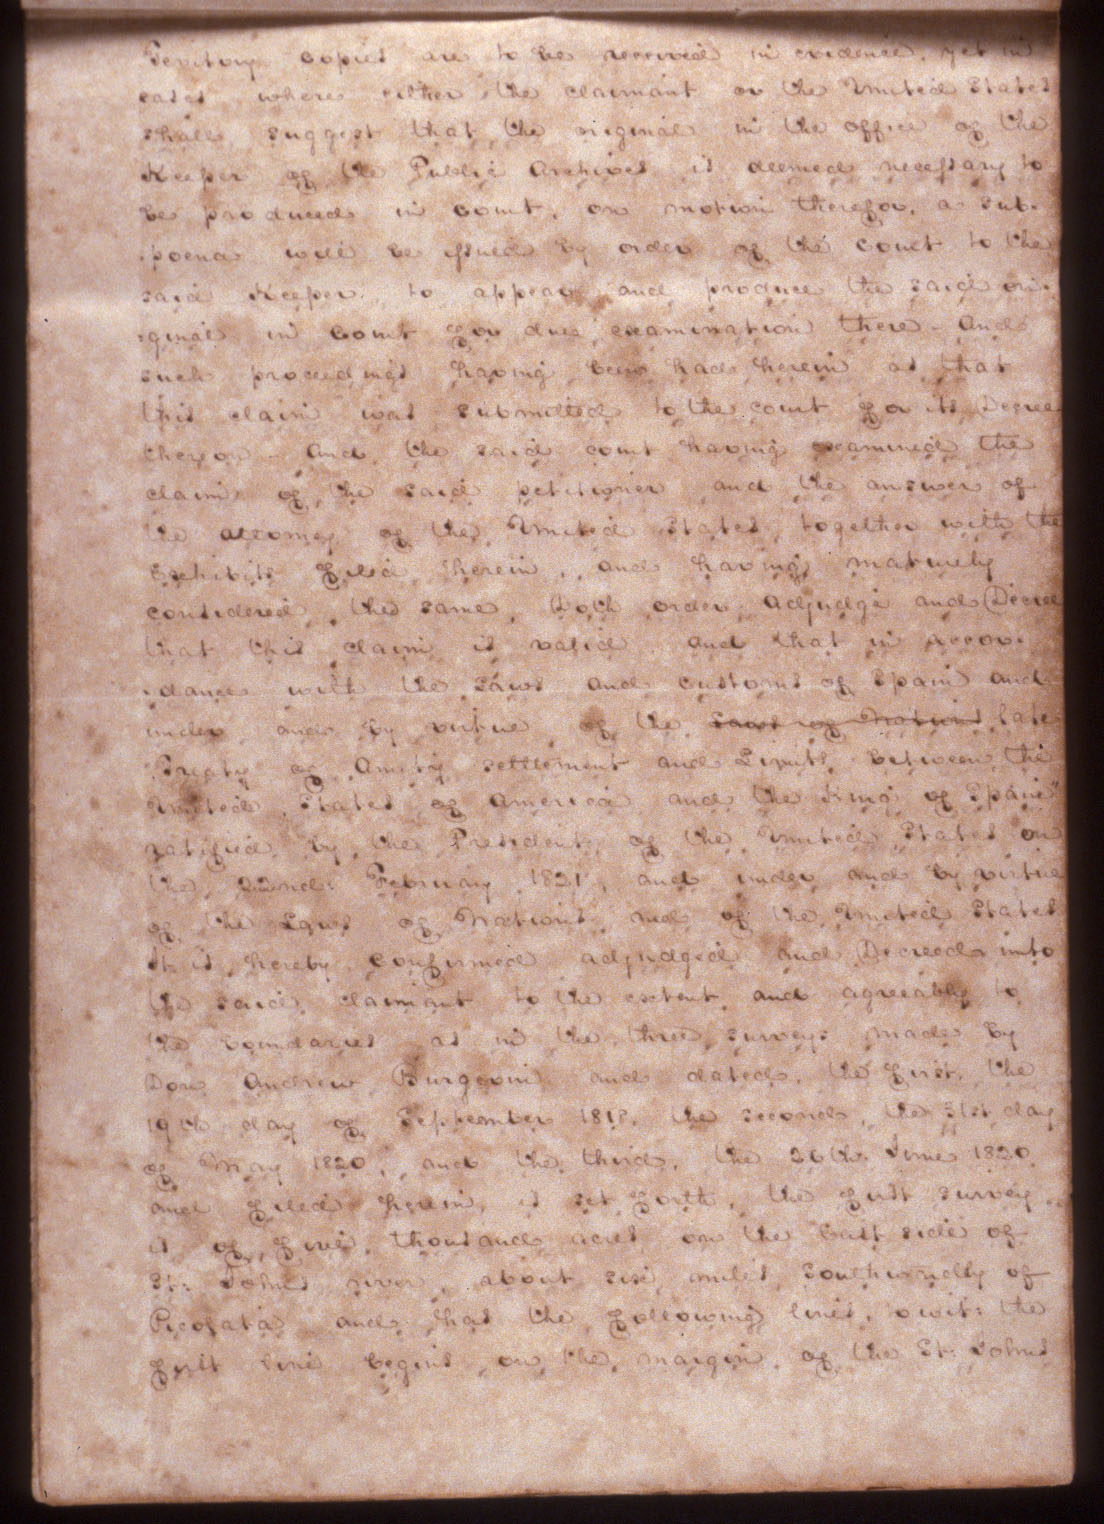 Territory copies are to be received in evidence, yet in
cases where either the claimant or the United States
shall suggest that the original in the office of the
Keeper of the Public Archives is deemed necessary to
be produced in court, on motion therefor, a sub-
poena will be issued by order of the court to the
said Keeper, to appear and produce the said ori-
ginal in Court for due examination there - And
such proceedings having been had herein as that
this claim was submitted to the court for its Decree
thereon - And the said court having examined the
claim of the said petitioner and the answer of
the attorney of the United States together with the
Exhibits filed herein, and having maturely
considered the same, Doth order adjudge and Decree
that this claim is valid and that in accor-
dance with the Laws and customs of Spain and
under and by virtue of the Laws of Nations late
Treaty of Amity settlement and Limits between the
United States of America and the King of Spain
ratified by the President of the United States on
the 22nd February 1821, and under and by virtue
of the Laws of Nations and of the United States
it is hereby confirmed adjudged and Decreed unto
the said claimant to the extent and agreeably to
the boundaries as in the three surveys made by
Don Andrew Burgevin and dated, the first, the
19th day of September 1818, the second, the 31st day
of May 1820, and the third, the 26th June 1820
and filed herein, is set forth, the first survey
is of five thousand acres on the East side of
St: Johns river, about six miles Southwardly of
Picolata and has the following lines, to wit: the
first line begins on the margin of the St: Johns